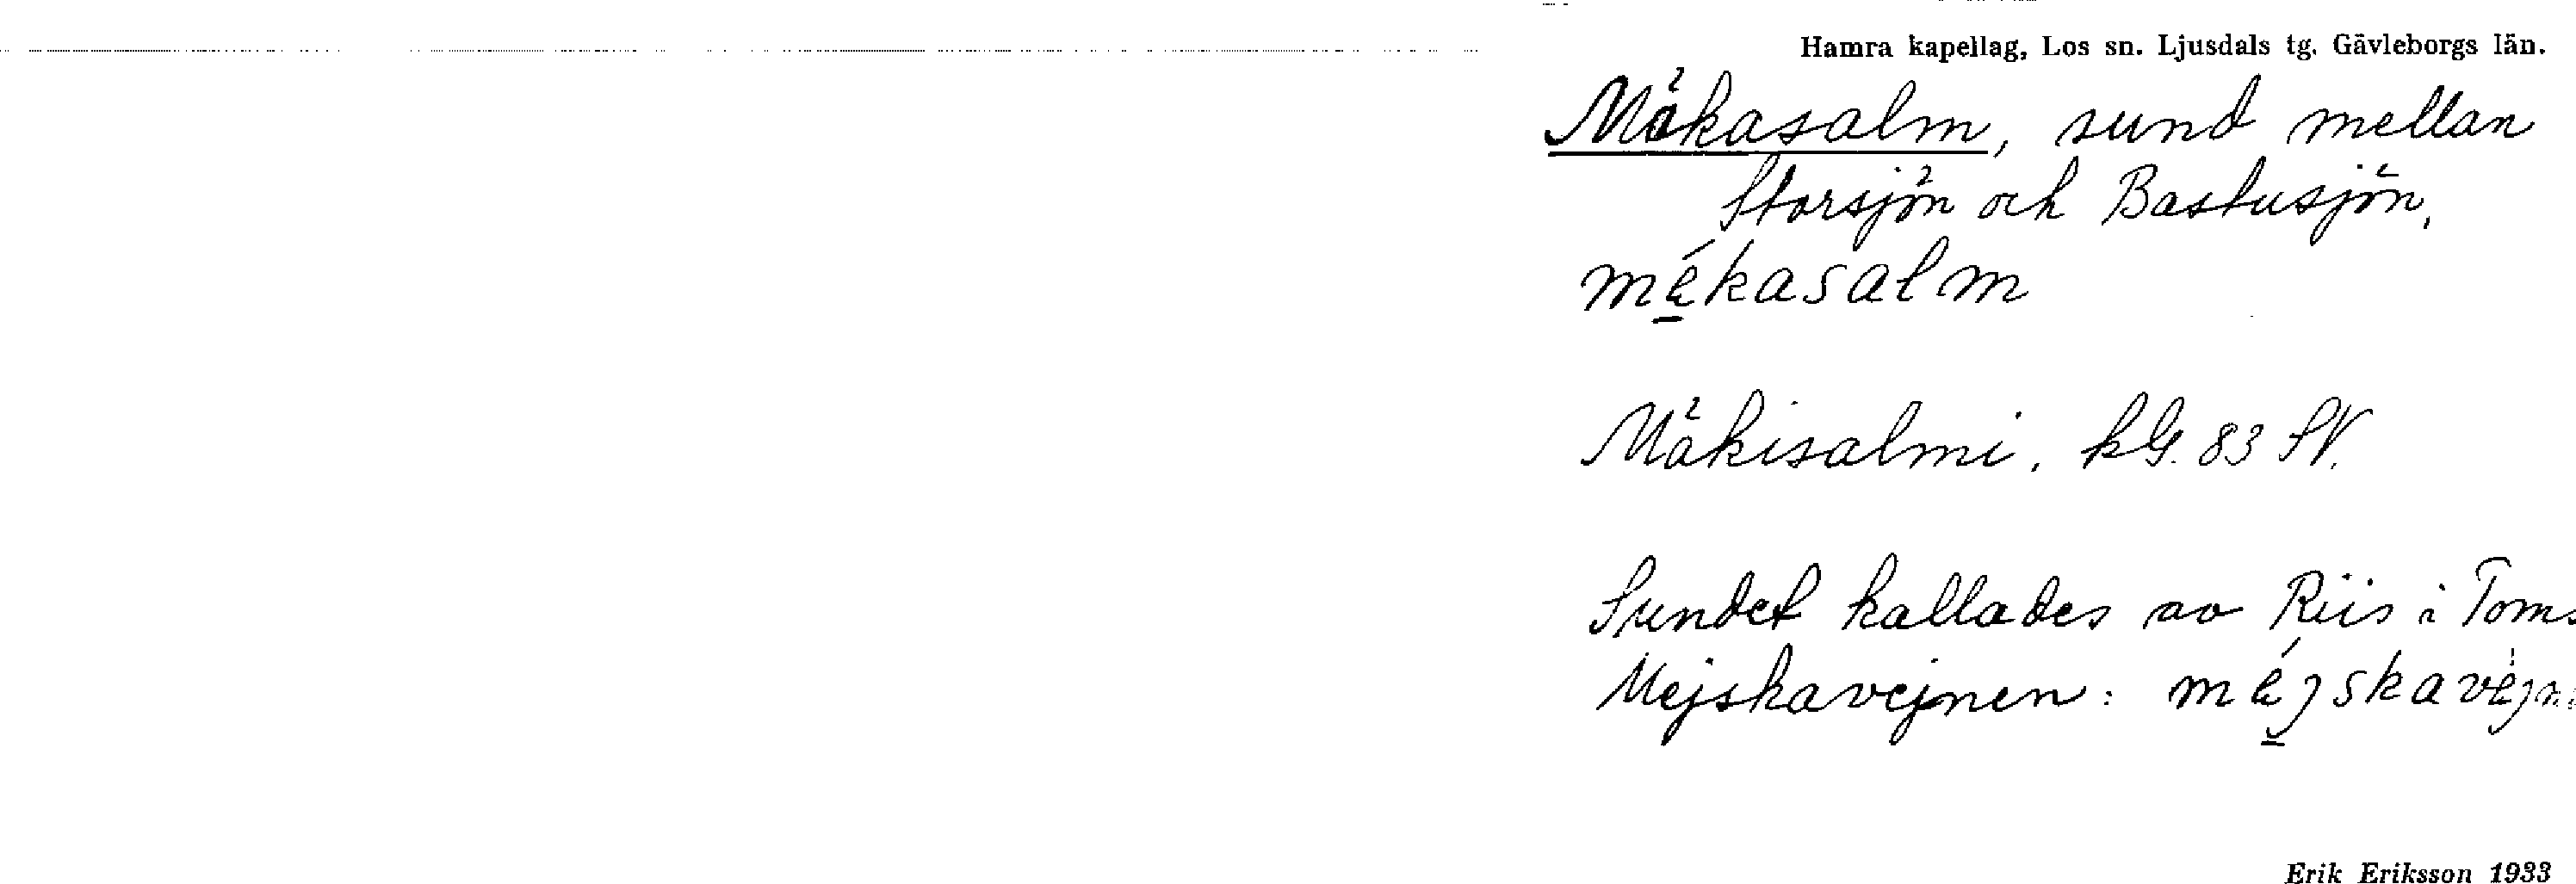 Hamra kapellag, Los sn. Ljusdals tg. Gävleborgs län.
Mäkasalm, sund mellan
Storsjön och Bastusjön.
mékasalm
Mäkisalmi. kG. 83 SV.
Sundet kallades av Riis i Toms
Mejskavejnen: méjskavèjn
Erik Eriksson 1933